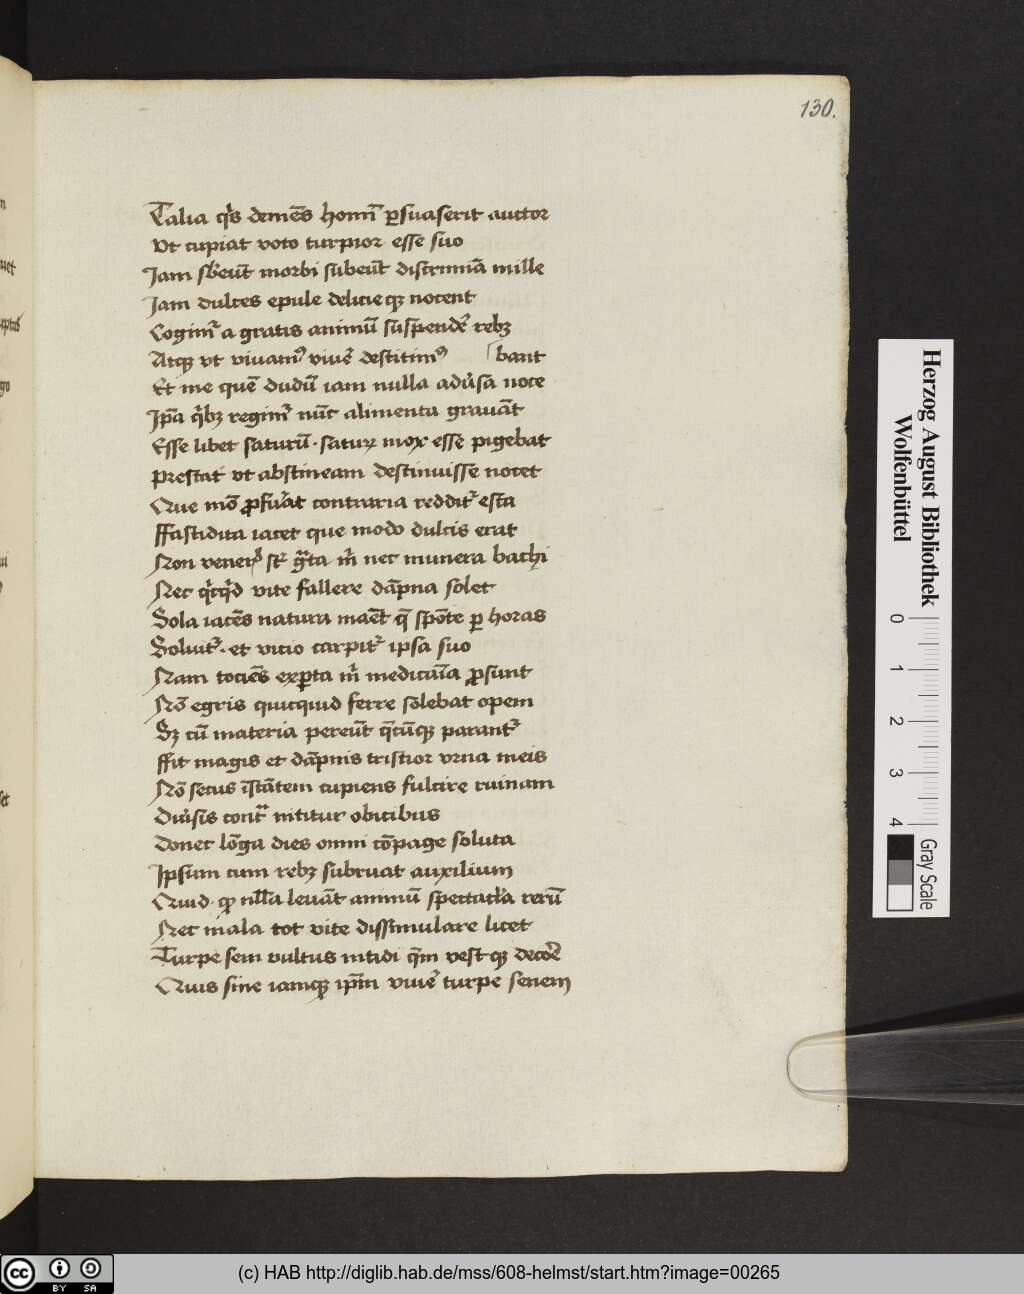 130.
Talia q's demēs homī ꝑsuaserit auctor
Vt cupiat voto turpior esse suo
Iam sb'eūt morbi subeūt discrimīa mille
Iam dulces epule delicieqꝫ nocent
Cogimr̄ a gratis animū suspendē rebꝫ
Atqꝫ vt viuamꝰ viuē destitimꝰ
Et me quē dudū iam nulla adu'sa noce bant
Ip̄a q'bꝫ regimr̄ nūc alimenta grauāt
Esse libet saturū · saturꝝ mox esse pigebat
Prestat vt abstineam destinuisse nocet
Que mō ꝓfu'at contraria redditr̄ esca
Ffastidita iacet que modo dulcis erat
Non vener' st' gͣta m' nec munera bachi
Nec q'cq'd vite fallere dāpna solet
Sola iacēs natura maēt q̄ spōte ꝑ horas
Soluitr̄ · et vicio carpitr̄ ipsa suo
Nam tociēs exꝑta m' medicaīa ꝓsunt
Nō egris quicquid ferre solebat opem
Sꝫ cū materia pereūt q̄cūqꝫ parantr̄
Ffit magis et dāpnis tristior vrna meis
Nō secus īstātem cupiens fulcire ruinam
Diu'sis contͣ nititur obicibus
Donec lōga dies omni cōpage soluta
Ipsum cum rebꝫ subruat auxilium
Quid · qꝫ nll'a leuāt animū spectacl'a rerū
Nec mala tot vite dissimulare licet
Turpe sem vultus nitidi q̄m vestqꝫ decōē
Quis sine iamqꝫ ip̄m viuē turpe senem
Herzog August Bibliothek
Wolfenbüttel
0 1 2 3 4
Gray Scale
cc BY SA
(c) HAB http://diglib.hab.de/mss/608-helmst/start.htm?image=00265